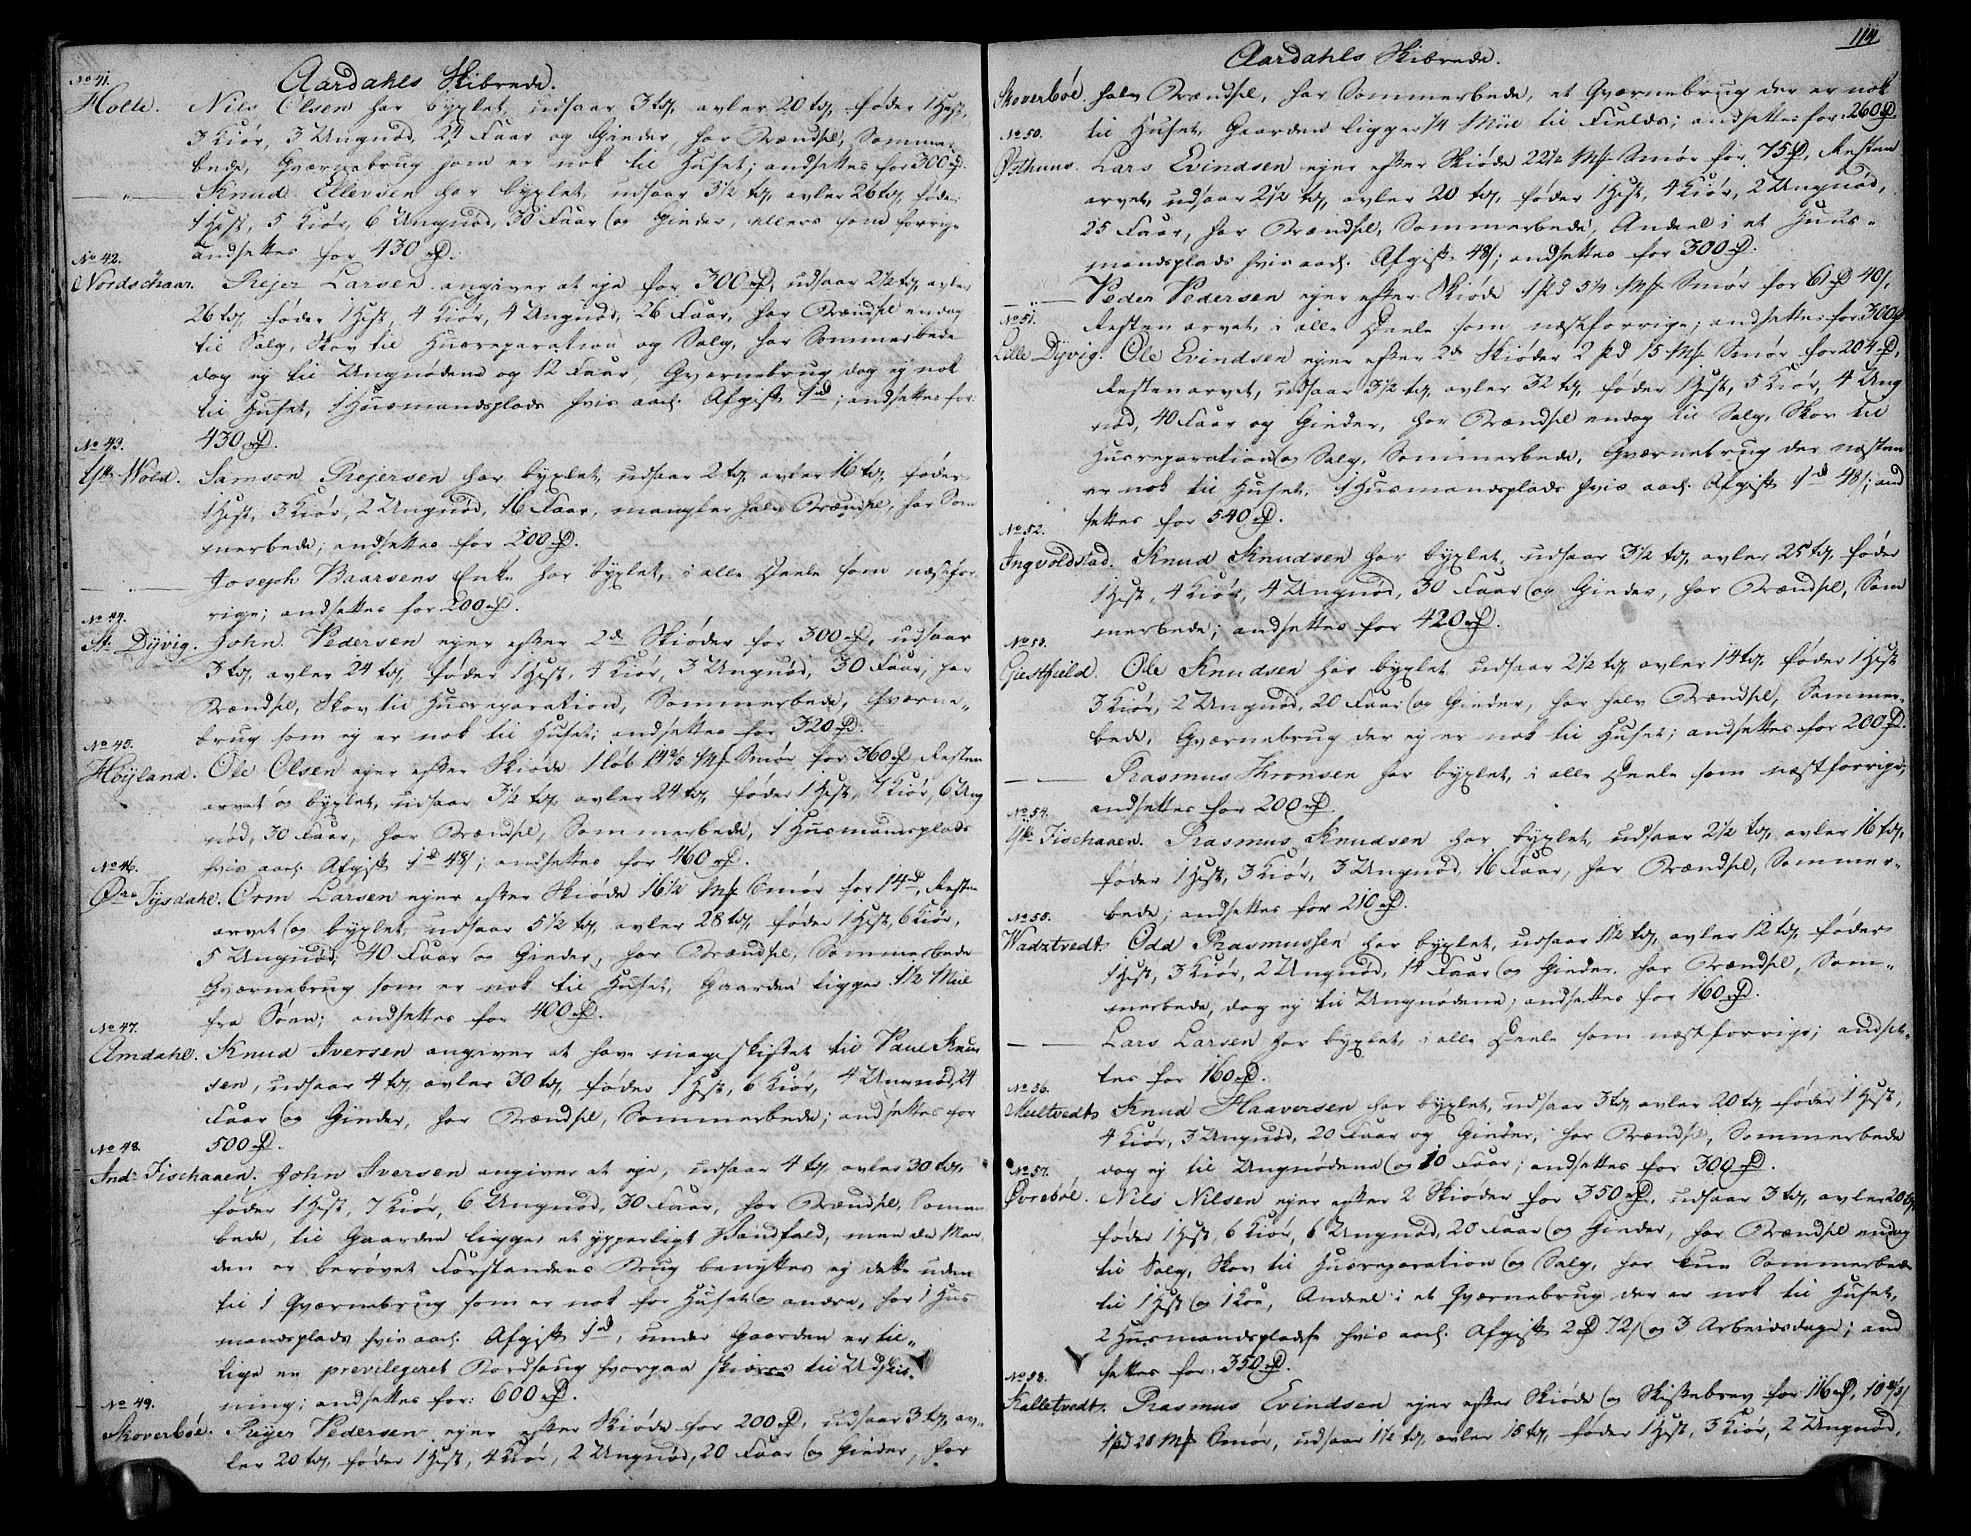 Aardahls Skibrede.
No 41.
Holle. Nils Olsen har byxlet, udsaar 3 td, avler 20 td, føder 1 Hest,
3 Kiør, 3 Ungnød, 24 Faar og Gieder, har Brændsel, Sommer
bede, Qværnebrug som er nok til Huset; andsettes for 300 rd.
— " — Knud Ellevsen har byxlet, udsaar 3 1/2 td, avler 26 td, føder
1 Hest, 5 Kiør, 6 Ungnød, 30 Faar og Gieder, ellers som forrige
andsettes for 430 rd.
No 42.
Nordschaar. Rejer Larsen angiver at eje for 300 rd, udsaar 2 1/2 td, avler
26 td, føder 1 Hest, 4 Kiør, 4 Ungnød, 26 Faar, har Brændsel endog
til Salg, Skov til Husreparation og Salg, har Sommerbede
dog ej til Ungnødene og 12 Faar, Qværnebrug dog ej nok
til Huset, 1 Husmandsplads hvis aarl. Afgift 1 rd; andsettes for
430 rd.
No 43.
Wold. Samson Rejersen har byxlet, udsaar 2 td, avler 16 td, føder
1 Hest, 3 Kiør, 2 Ungnød, 16 Faar, mangler halv Brændsel, har Som
merbede; andsettes for 200 rd.
— " — Joseph Baarsens Enke har byxlet, i alle Deele som næstfor
rige; andsettes for 200 rd.
No 44.
St. Dyvig. John Pedersen ejer efter 2de Skiøder for 300 rd, udsaar
3 td, avler 24 td, føder 1 Hest, 4 Kiør, 3 Ungnød, 30 Faar, har
Brændsel, Skov til Husreparation, Sommerbede, Qværne„
brug som ej er nok til Huset; andsettes for 320 rd.
No 45.
Høyland. Ole Olsen ejer efter Skiøde 1 Løb 14 2/5 Mf Smør for 360 rd Resten
arvet og byxlet, udsaar 3 1/2 td, avler 24 td, føder 1 Hest, 7 Kiør, 6 Ung
nød, 30 Faar, har Brændsel, Sommerbede, 1 Husmandsplads
hvis aarl. Afgift 1 rd 48 s; andsettes for 460 rd.
No 46.
Øvre Tysdahl. Orm Larsen ejer efter Skiøde 16 1/2 Mf Smør for 14 rd, Resten
arvet og byxlet, udsaar 5 1/2 td, avler 28 td, føder 1 Hest, 6 Kiør,
5 Ungnød, 40 Faar og Gieder, har Brændsel, Sommerbede
Qværnebrug som er nok til Huset, Gaarden ligger 1 1/2 Miil
fra Søen; andsettes for 400 rd.
No 47.
Amdahl. Knud Iversen angiver at have mageskiftet til Paul Knud
sen, udsaar 4 td, avler 30 td, føder 1 Hest, 6 Kiør, 4 Ungnød, 24
Faar og Gieder, har Brændsel, Sommerbede; andsettes for
500 rd.
No 48.
Ind. Tischaaen. John Iversen angiver at eje, udsaar 4 td, avler 30 td,
føder 1 Hest, 7 Kiør, 6 Ungnød, 30 Faar, har Brændsel, Sommer
bede, til Gaarden ligger et ypperligt Vandfald, men da Man
den er berøvet Forstandens Brug benyttes ej dette uden
til 1 Qværnebrug som er nok for Huset og andre, har 1 Hus
mandsplads hvis aarl. Afgift 1 rd, under Gaarden er til„
lige en previlegeret Bordsaug hvorpaa skiæres til Udskib„
ning; andsettes for 600 rd.
No 49.
Skoverbøe. Reyer Pedersen ejer efter Skiøde for 200 rd, udsaar 3 td, av„
ler 20 td, føder 1 Hest, 4 Kiør, 2 Ungnød, 20 Faar og Gieder, har
114
Aardahls Skibrede.
Skoverbøe. halv Brændsel, har Sommerbede, et Qværnebrug der er nok
til Huset, Gaarden ligger 1/4 Miil til Fields; andsettes for 260 rd.
No 50.
Østhuus. Lars Evindsen ejer efter Skiøde 22 1/2 Mf Smør for 75 rd, Resten
arvet, udsaar 2 1/2 td, avler 20 td, føder 1 Hest, 4 Kiør, 2 Ungnød,
25 Faar, har Brændsel, Sommerbede, Andeel i et Huus„
mandsplads hvis aarl. Afgift 48 s; andsettes for 300 rd.
— " — Peder Pedersen ejer efter Skiøde 1 pd 5 1/4 Mf Smør for 61 rd 40 s,
Resten arvet, i alle Deele som næstforrige; andsettes for 300 rd
No 51.
Lille Dyvig. Ole Evindsen ejer efter 2de Skiøder 2 pd 15 Mf Smør for 204 rd,
Resten arvet, udsaar 3 1/2 td, avler 32 td, føder 1 Hest, 5 Kiør, 4 Ung
nød, 40 Faar og Gieder, har Brændsel endog til Salg, Skov til
Husreparation og Salg, Sommerbede, Qværnebrug der næsten
er nok til Huset, 1 Husmandsplads hvis aarl. Afgift 1 rd 48 s; and
settes for 540 rd.
No 52.
Ingvoldstad. Knud Knudsen har byxlet, udsaar 3 1/2 td, avler 25 td, føder
1 Hest, 4 Kiør, 4 Ungnød, 30 Faar og Gieder, har Brændsel, Som
merbede; andsettes for 420 rd.
No 53.
Giestfield. Ole Knudsen har byxlet, udsaar 2 1/2 td, avler 14 td, føder 1 Hest
3 Kiør, 2 Ungnød, 20 Faar og Gieder, har halv Brændsel, Sommer„
bede, Qværnebrug der ej er nok til Huset; andsettes for 200 rd.
— — Rasmus Thronsen har byxlet, i alle Deele som næstforrige;
andsettes for 200 rd.
No 54.
Tischaaen. Rasmus Knudsen har byxlet, udsaar 2 1/2 td, avler 16 td,
føder 1 Hest, 3 Kiør, 3 Ungnød, 16 Faar, har Brændsel, Sommer„
bede; andsettes for 210 rd.
No 55.
Wadztvedt. Odd Rasmussen har byxlet, udsaar 1 1/2 td, avler 12 td, føder
1 Hest, 3 Kiør, 2 Ungnød, 14 Faar og Gieder, har Brændsel, Som„
merbede, dog ej til Ungnødene; andsettes for 160 rd.
— — Lars Larsen har byxlet, i alle Deele som næstforrige; andset„
tes for 160 rd.
No 56.
Meeltvedt. Knud Haaversen har byxlet, udsaar 3 td, avler 20 td, føder 1 Hest,
4 Kiør, 3 Ungnød, 20 Faar og Gieder, har Brændsel, Sommerbede
dog ej til Ungnødene og 10 Faar; andsettes for 300 rd.
No 57.
Øvrebøe. Nils Nilsen ejer efter 2 Skiøder for 350 rd, udsaar 3 td, avler 20 td,
føder 1 Hest, 6 Kiør, 6 Ungnød, 20 Faar og Gieder, har Brændsel endog
til Salg, Skov til Husreparation og Salg, har kun Sommerbede
til 1 Hest og 1 Koe, Andeel i et Qværnebrug der er nok til Huset,
2 Husmandspladse hvis aarl. Afgift 2 rd 72 s og 3 Arbeidsdage; and
settes for 350 rd.
No 58.
Kalletvedt. Rasmus Evindsen ejer efter Skiøde og Skiftebrev for 116 rd, 10 2/3 s
1 pd 20 Mf Smør, udsaar 1 1/2 td, avler 15 td, føder 1 Hest, 3 Kiør, 2 Ungnød,